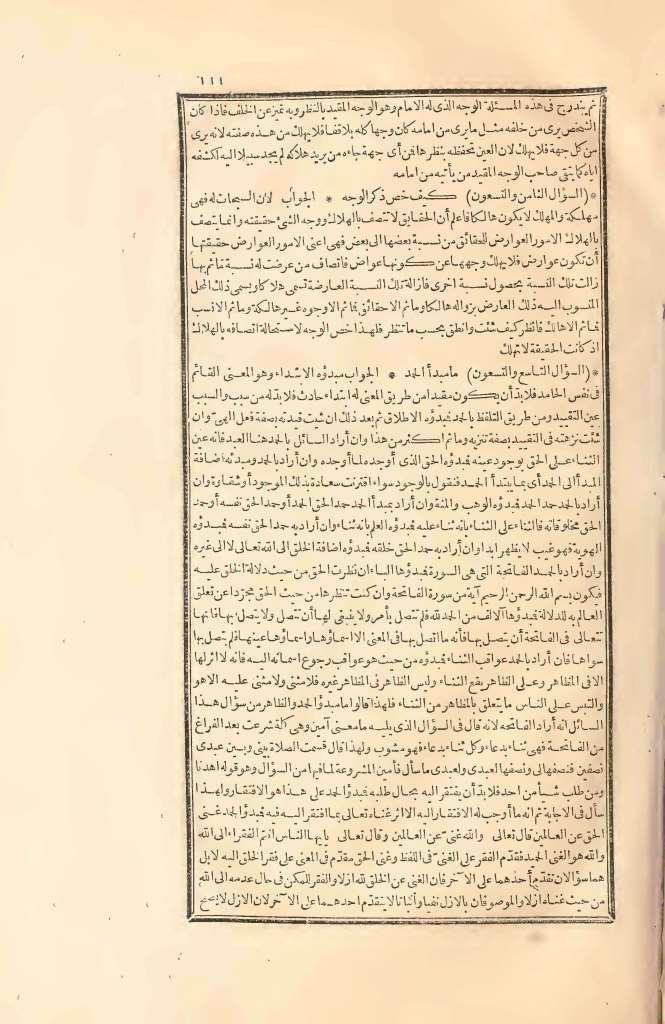 ١١١
ثم يندرج فى هذه المسئلة الوجه الذى له الامام وهو الوجه المقيد بالنظر وبه تميز عن الخلف فاذا كان
الشخص يرى من خلفه مثل ما يرى من امامه كان وجها كله بلا قفا فلا يهلك من هذه صفته لانه يرى
من كل جهة فلا يهلك لان العين تحفظه بنظرها فن أى جهة جاءه من يريد هلاكه لم يجد سبيلا اليه لكشفه
اياه كما يتقى صاحب الوجه المقيد من يأتيه من امامه
* (السؤال الثامن والتسعون) كيف خص ذكر الوجه * الجواب لان السبحات له فهى
مهلكة والمهلك لا يكون هالكا فاعلم أن الحقايق لا تتصف بالهلاك ووجه الشئ حقيقته وانما يتصف
بالهلاك الامور العوارض للحقائق من نسبة بعضها الى بعض فهى اعنى الامور العوارض حقيقتها
أن تكون عوارض فلا يهلك وجهها عن كونها عوارض فاتصاف من عرضت له نسبة ما ثم بها
زالت تلك النسبة بحصول نسبة اخرى فازالة تلك النسبة العارضة تسمى هلاكا ويسمى ذلك المحل
المنسوب اليه ذلك العارض بزواله هالكا وما ثم الا حقائق فما ثم الا وجوه غير هالكة وما ثم الا نسب
فما ثم الا هالك فانظر كيف شئت وانطق بحسب ما تنظر فلهذا خص الوجه لاستحالة اتصافه بالهلاك
اذ كانت الحقيقة لا تهلك
* (السؤال التاسع والتسعون) ما مبدأ الحمد * الجواب مبدؤه الابتداء وهو المعنى القائم
فى نفس الحامد فلا بد أن يكون مقيدا من طريق المعنى له ابتداء حادث فلا بد له من سبب والسبب
عين التقييد ومن طريق التلفظ بالحمد فبدؤه الاطلاق ثم بعد ذلك ان شئت قيدته بصفة فعل الهى وان
شئت نزهته فى التقييد بصفة تنزيه وما ثم اكثر من هذا وان أراد السائل بالحمد هنا العبد فانه عين
الثناء على الحق بوجود عينه فبدؤه الحق الذى أوجده لما أوجده وان أراد بالحمد ومبدئه اضافة
المبدأ الى الحمد أى بما يبتدأ الحمد فنقول بالوجود سواء اقترنت سعادة بذلك الموجود أو شقاوة وان
أراد بالحمد حمد الحمد فبدؤه الوهب والمنة وان أراد بمبدأ الحمد حمد الحق الحمد أو حمد الحق نفسه أو حمد
الحق مخلوقاته فالثناء على الثناء بانه ثناء ثناء عليه فبدؤه العلم بانه ثناء وان أراد به حمد الحق نفسه فبدؤه
الهوية فهو غيب لا يظهر ابدا وان أراد به حمد الحق خلقه فبدؤه اضافة الخلق الى الله تعالى لا الى غيره
وان أراد بالحمد الفاتحة التى هى السورة فبدؤها الباء ان نظرت الحق من حيث دلالة الخلق عليه
فيكون بسم الله الرحمن الرحيم آية من سورة الفاتحة وان كنت تنظرها من حيث الحق مجرد عن تعلق
العالم به للدلالة فبدؤها الالف من الحمد لله فلم تتصل بأمر ولا ينبغى لها أن تتصل ولا يتصل بها فانها
تتعالى فى الفاتحة أن يتصل بها فانه ما اتصل بها فى المعنى الا اسماؤها واسماؤها عينها فلم يتصل بها
سواها فان أراد بالحمد عواقب الثناء فبدؤه من حيث هو عواقب رجوع اسمائه اليه فانه لا اثر لها
الا فى المظاهر وعلى الظاهر يقع الثناء وليس الظاهر فى المظاهر غيره فلا مثنى ولا مثنى عليه الا هو
والتبس على الناس ما يتعلق بالمظاهر من الثناء فلهذا قالوا ما مبدؤ الحمد والظاهر من سؤال هذا
السائل انه أراد الفاتحة لانه قال فى السؤال الذى يليه ما معنى آمين وهى كلمة شرعت بعد الفراغ
من الفاتحة فهى ثناء بدعاء وكل ثناء بدعاء فهو مشوب ولهذا قال قسمت الصلاة بينى وبين عبدى
نصفين فنصفها لى ونصفها لعبدى ولعبدى ما سأل فآمين المشروعة لما فيها من السؤال وهو قوله اهدنا
ومن طلب شيأ من احد فلا بد أن يفتقر اليه بحال طلبه فبدؤ الحمد على هذا هو الافتقار ولهذا
سأل فى الاجابة ثم انه ما أوجب له الافتقار اليه الا اثر غناه تعالى بما افتقر اليه فيه فبدؤ الحمد غنى
الحق عن العالمين قال تعالى والله غنى عن العالمين وقال تعالى يايها الناس انتم الفقراء الى الله
والله هو الغنى الحميد فقدم الفقر على الغنى فى اللفظ وغنى الحق مقدم فى المعنى على فقر الخلق اليه لا بل
هما سؤالان تقدم أحدهما على الآخر فان الغنى عن الخلق لله ازلا والفقر للممكن فى حال عدمه الى الله
من حيث غناه ازلا والموصوفان بالازل نفيا واثباتا لا يتقدم احدهما على الآخر لان الازل لا يصح